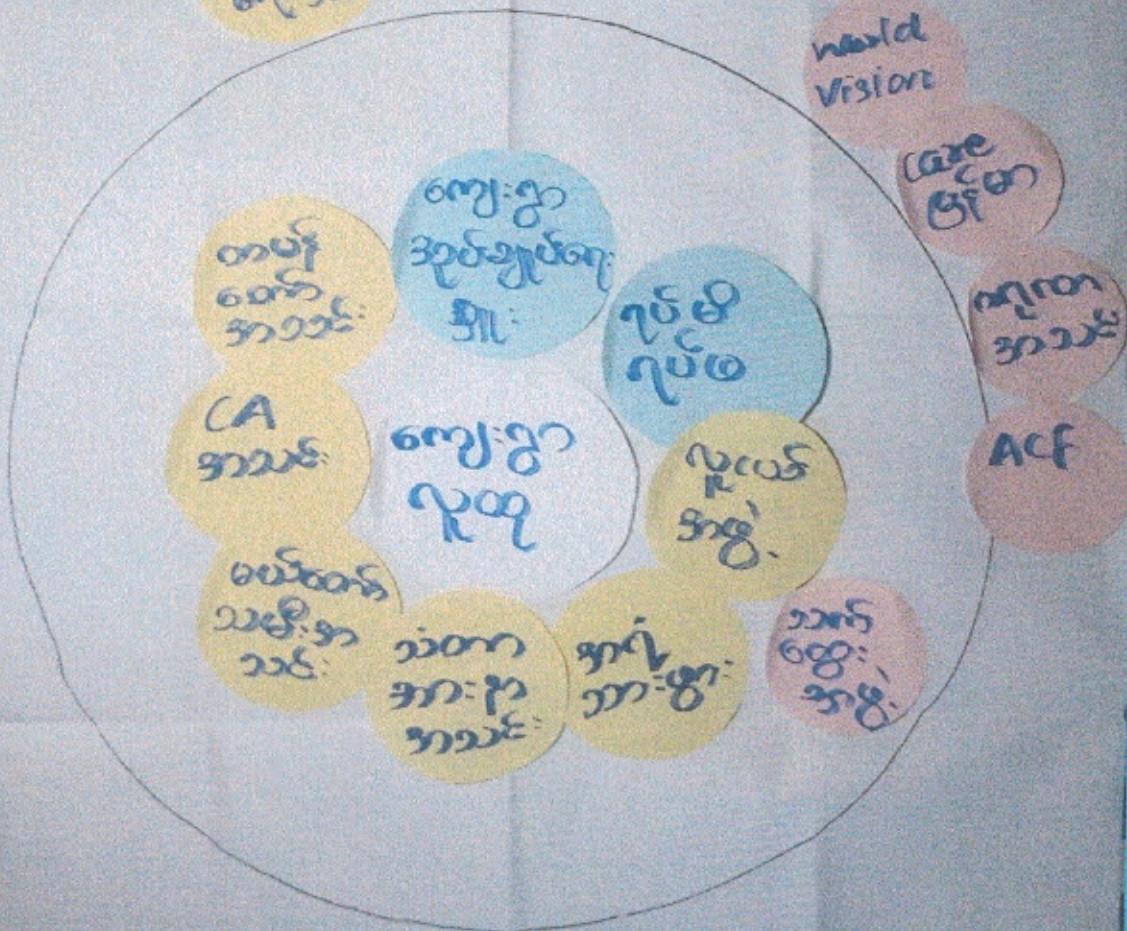 World
Vision
Care
မြန်မာ
ကရုဏာ
အသင်း
ACF
ကျေးရွာ
အုပ်ချုပ်ရေး
မှူး
ရပ်မိ
ရပ်ဖ
တမန်
တော်
အသင်း
CA
အသင်း
ကျေးရွာ
လူထု
လူငယ်
အဖွဲ့
မယ်တော်
သမီးအ
သင်း
သံတာ
အားနာ
အသင်း
အရံ
သားဖွား
သက်
ထွေး
အဖွဲ့